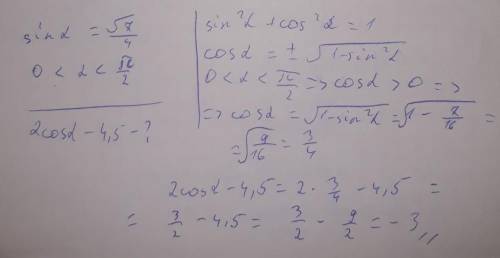 sin α = √7/4
0 < α < π/2
2cosα - 4,5 - ?
sin²α + cos²α = 1
cosα = ± √(1-sin²α)
0 < α < π/2 => cosα > 0 =>
=> cosα = √(1-sin²α) = √(1 - 7/16) =
= √(9/16) = 3/4
2cosα - 4,5 = 2 · 3/4 - 4,5 =
= 3/2 - 4,5 = 3/2 - 9/2 = - 3,,